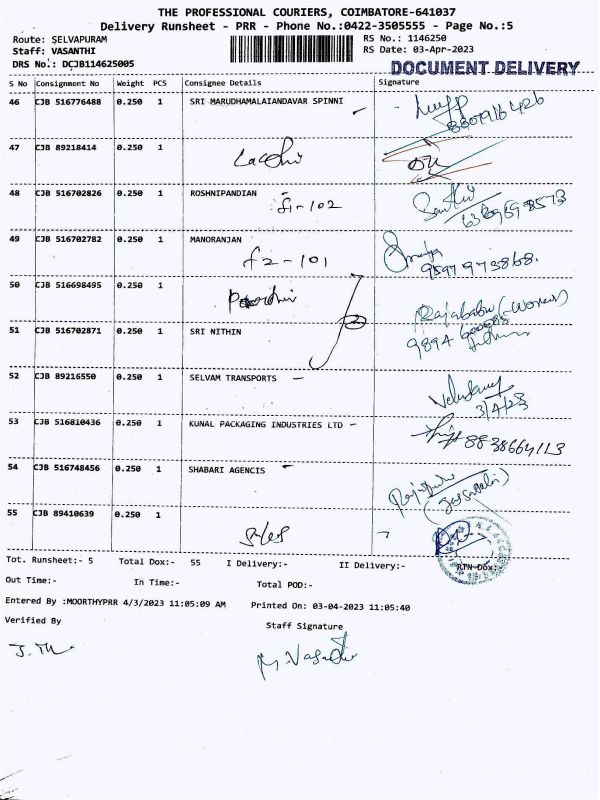 THE PROFESSIONAL COURIERS, COIMBATORE-641037
Delivery Runsheet - PRR - Phone No.:0422-3505555 - Page No.:5
Route: SELVAPURAM RS No.: 1146250
Staff: VASANTHI RS Date: 03-Apr-2023
DRS No.: DCJB114625005 DOCUMENT DELIVERY
S No Consignment No Weight PCS Consignee Details Signature
46 CJB 516776488 0.250 1 SRI MARUDHAMALAIANDAVAR SPINNI
47 CJB 89218414 0.250 1
48 CJB 516702826 0.250 1 ROSHNIPANDIAN
49 CJB 516702782 0.250 1 MANORANJAN
f2-101
50 CJB 516698495 0.250 1
Rajababu
51 CJB 516702871 0.250 1 SRI NITHIN
52 CJB 89216550 0.250 1 SELVAM TRANSPORTS -
3/4/23
53 CJB 516810436 0.250 1 KUNAL PACKAGING INDUSTRIES LTD -
8838664113
54 CJB 516748456 0.250 1 SHABARI AGENCIS
55 CJB 89410639 0.250 1
Tot. Runsheet:- 5 Total Dox:- 55 I Delivery:- II Delivery:- RTN Dox:-
Out Time:- In Time:- Total POD:-
Entered By :MOORTHYPRR 4/3/2023 11:05:09 AM Printed On: 03-04-2023 11:05:40
Verified By Staff Signature
M.Vasanthi